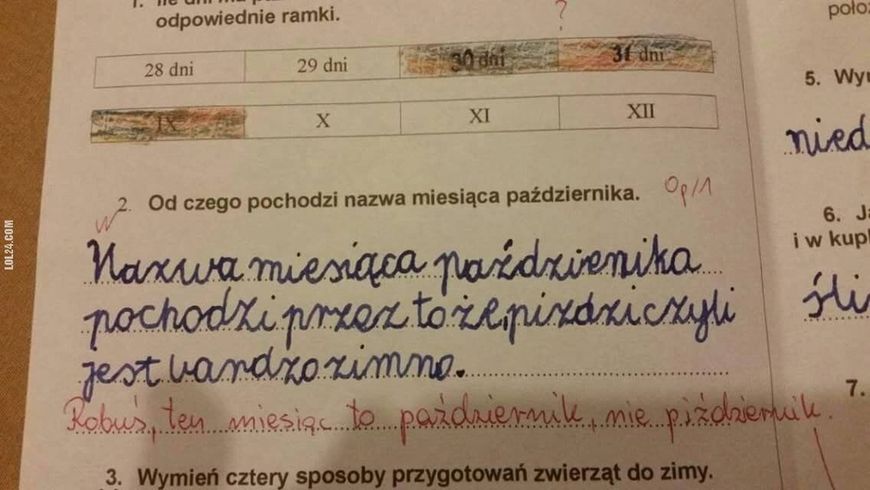 odpowiednie ramki.
?
28 dni 29 dni 30 dni 31 dni
IX X XI XII
2. Od czego pochodzi nazwa miesiąca października. 0p/1
Nazwa miesiąca paździenika
pochodzi przez to że, piździ czyli
jest bardzo zimno.
Robuś, ten miesiąc to październik, nie piździernik.
3. Wymień cztery sposoby przygotowań zwierząt do zimy.
poło
5. Wy
nied
6. J
i w kupk
śli
7.
LOL24.COM